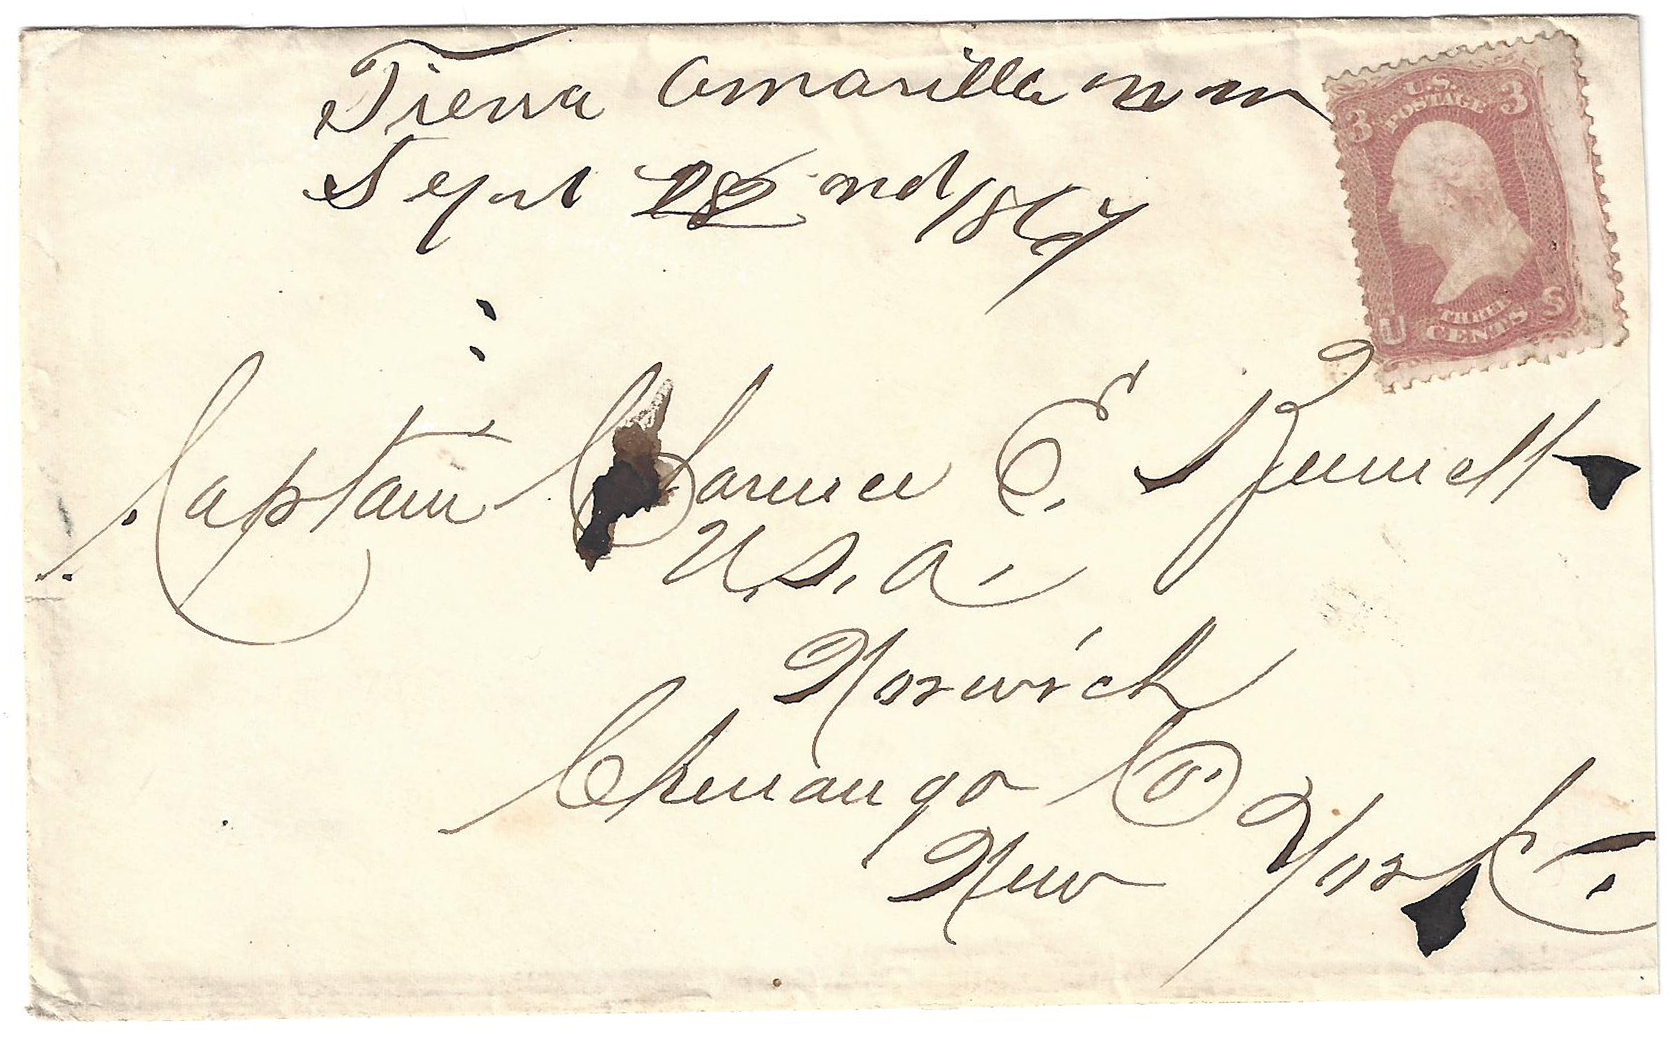 Tierra Amarilla N M
Sept 22nd 1867
U.S. POSTAGE
3 3
THREE CENTS
U S
Captain Clarence E. Bennett
U.S.A.
Norwich
Chenango Co.
New York.